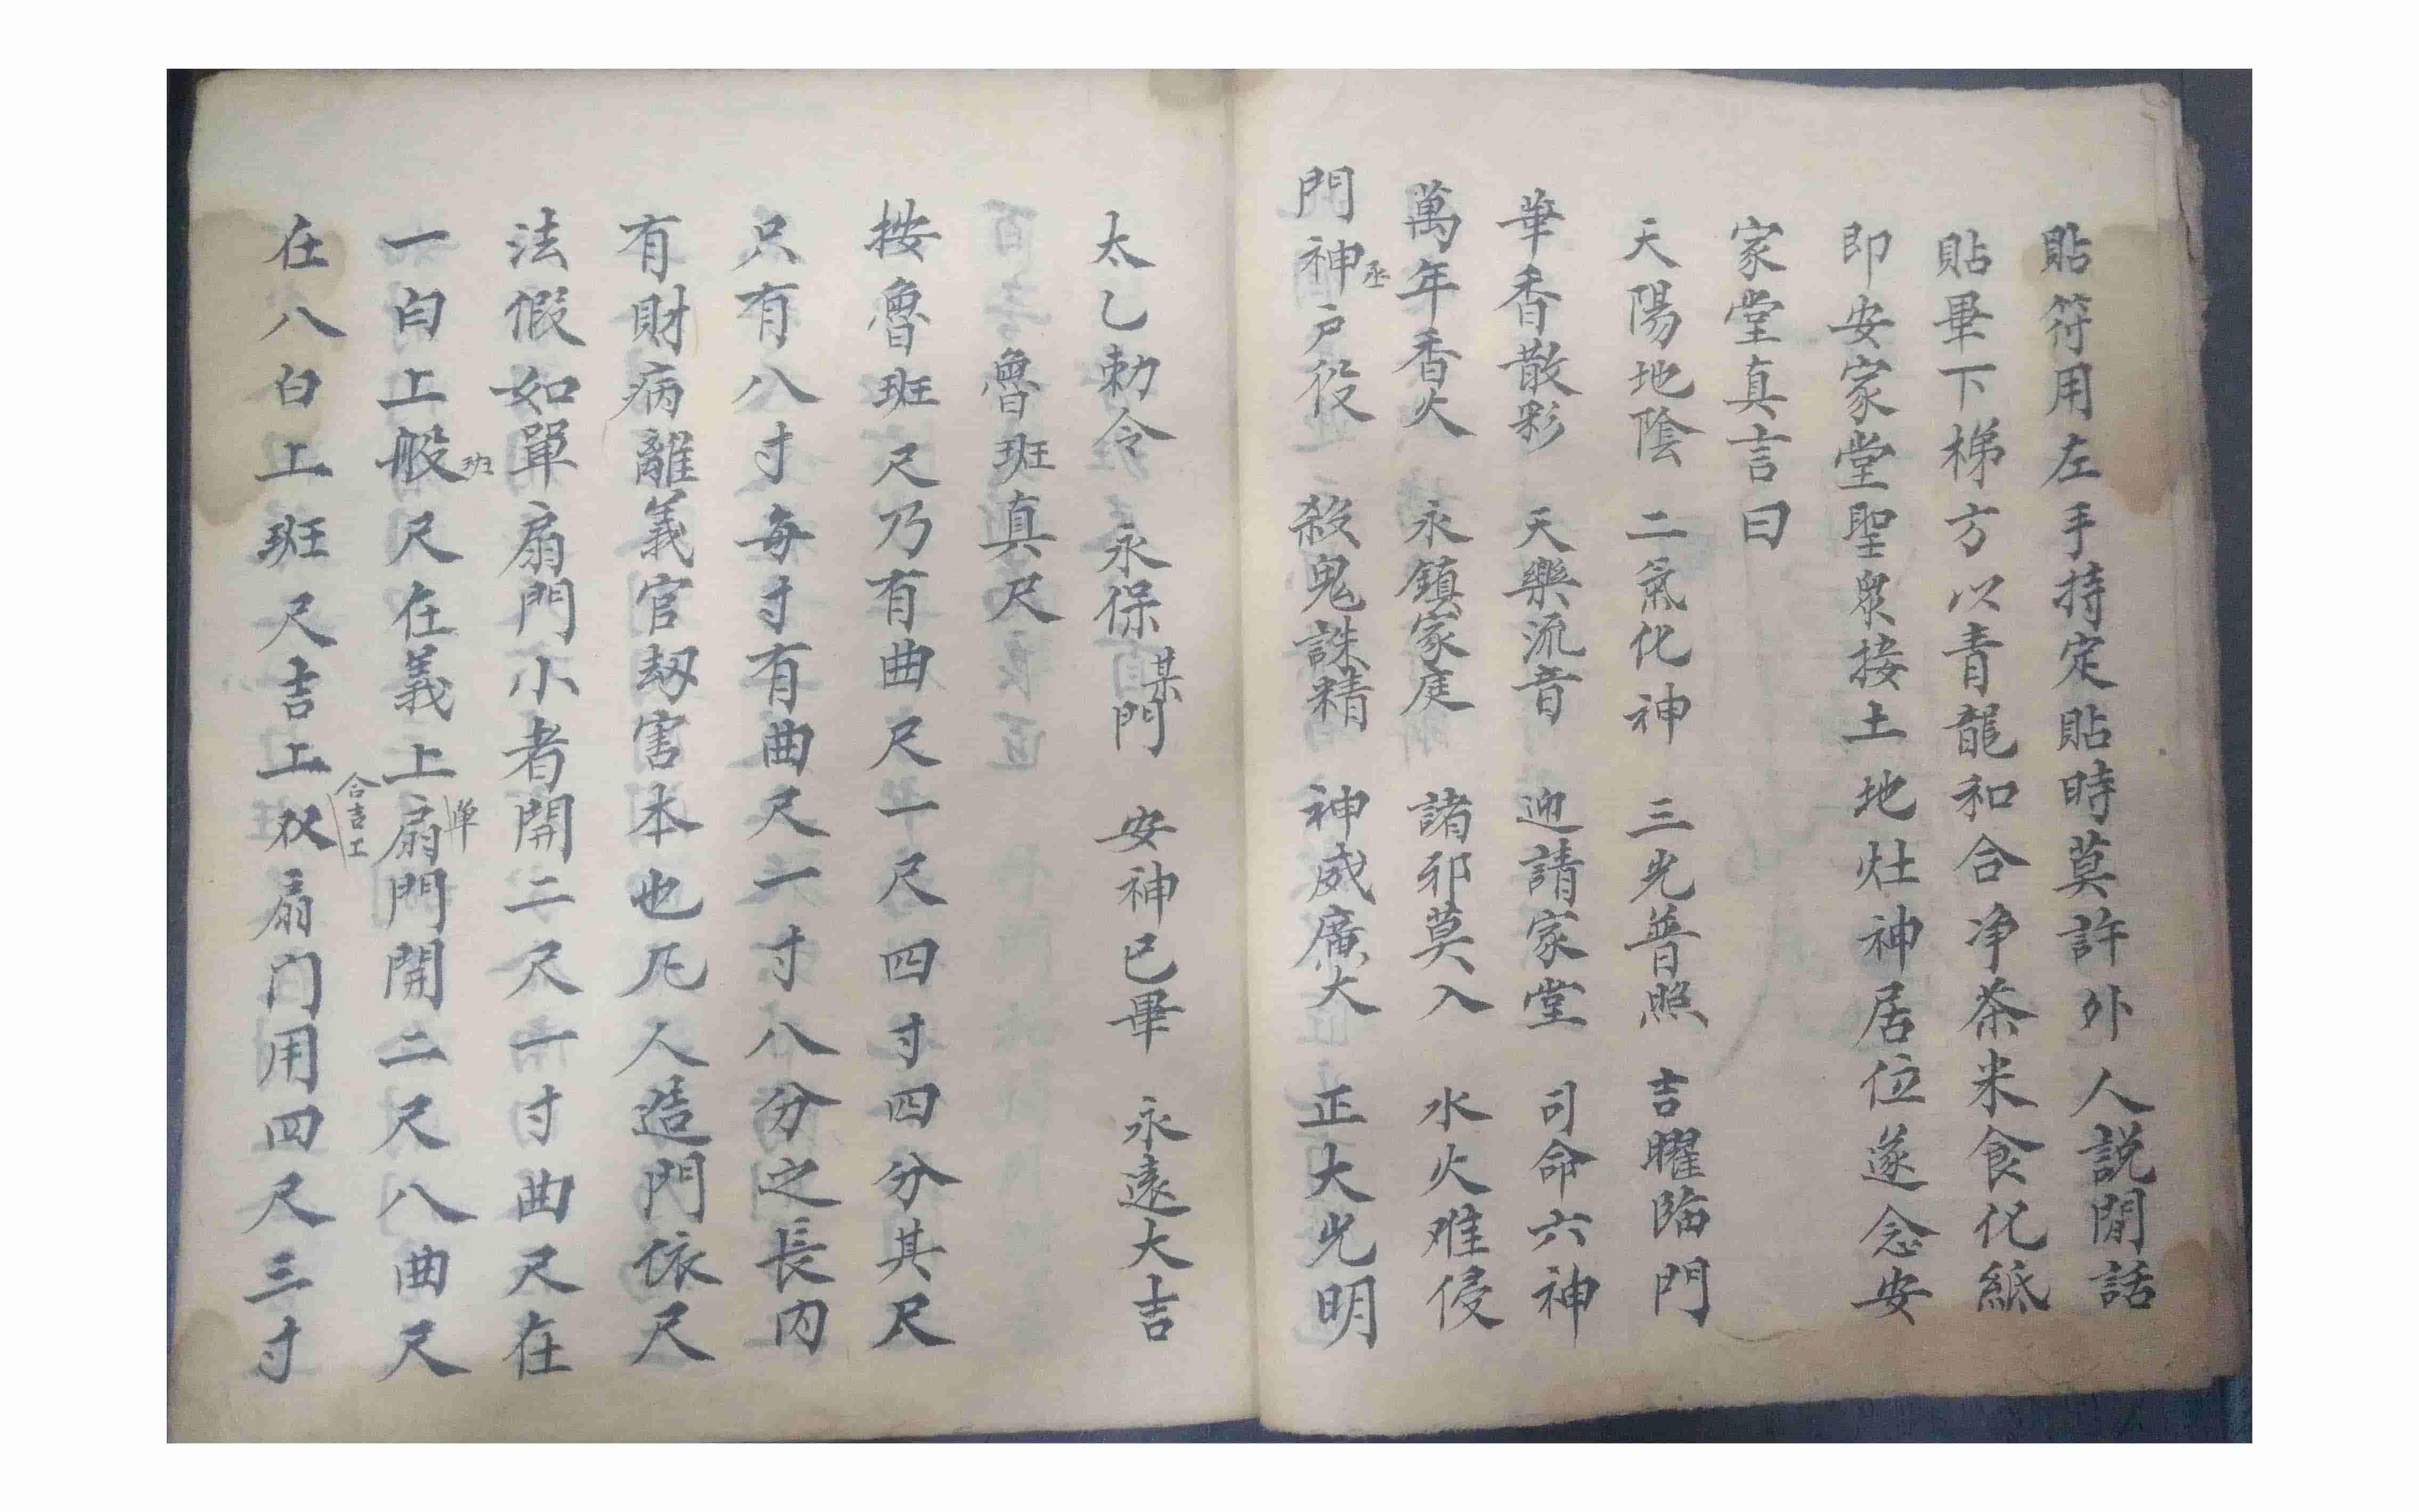 貼符用左手持定貼時莫許外人説閒話
貼畢下梯方以青龍和合净茶米食化紙
即安家堂聖衆接土地灶神居位遂念安
家堂真言曰
天陽地陰 二氣化神 三光普照 吉曜臨門
華香散彩 天樂流音 迎請家堂 司命六神
萬年香火 永鎮家庭 諸邪莫入 水火难侵
門神丞户役 殺鬼誅精 神威廣大 正大光明
太乙勅令 永保某門 安神已畢 永遠大吉
魯班真尺
按魯班尺乃有曲尺一尺四寸四分其尺
只有八寸每寸有曲尺一寸八分之長内
有財病離義官刼害本也凡人造門依尺
法假如單扇門小者開二尺一寸曲尺在
一白上般班尺在義上单扇門開二尺八曲尺
在八白上班尺吉上合吉工双扇门用四尺三寸